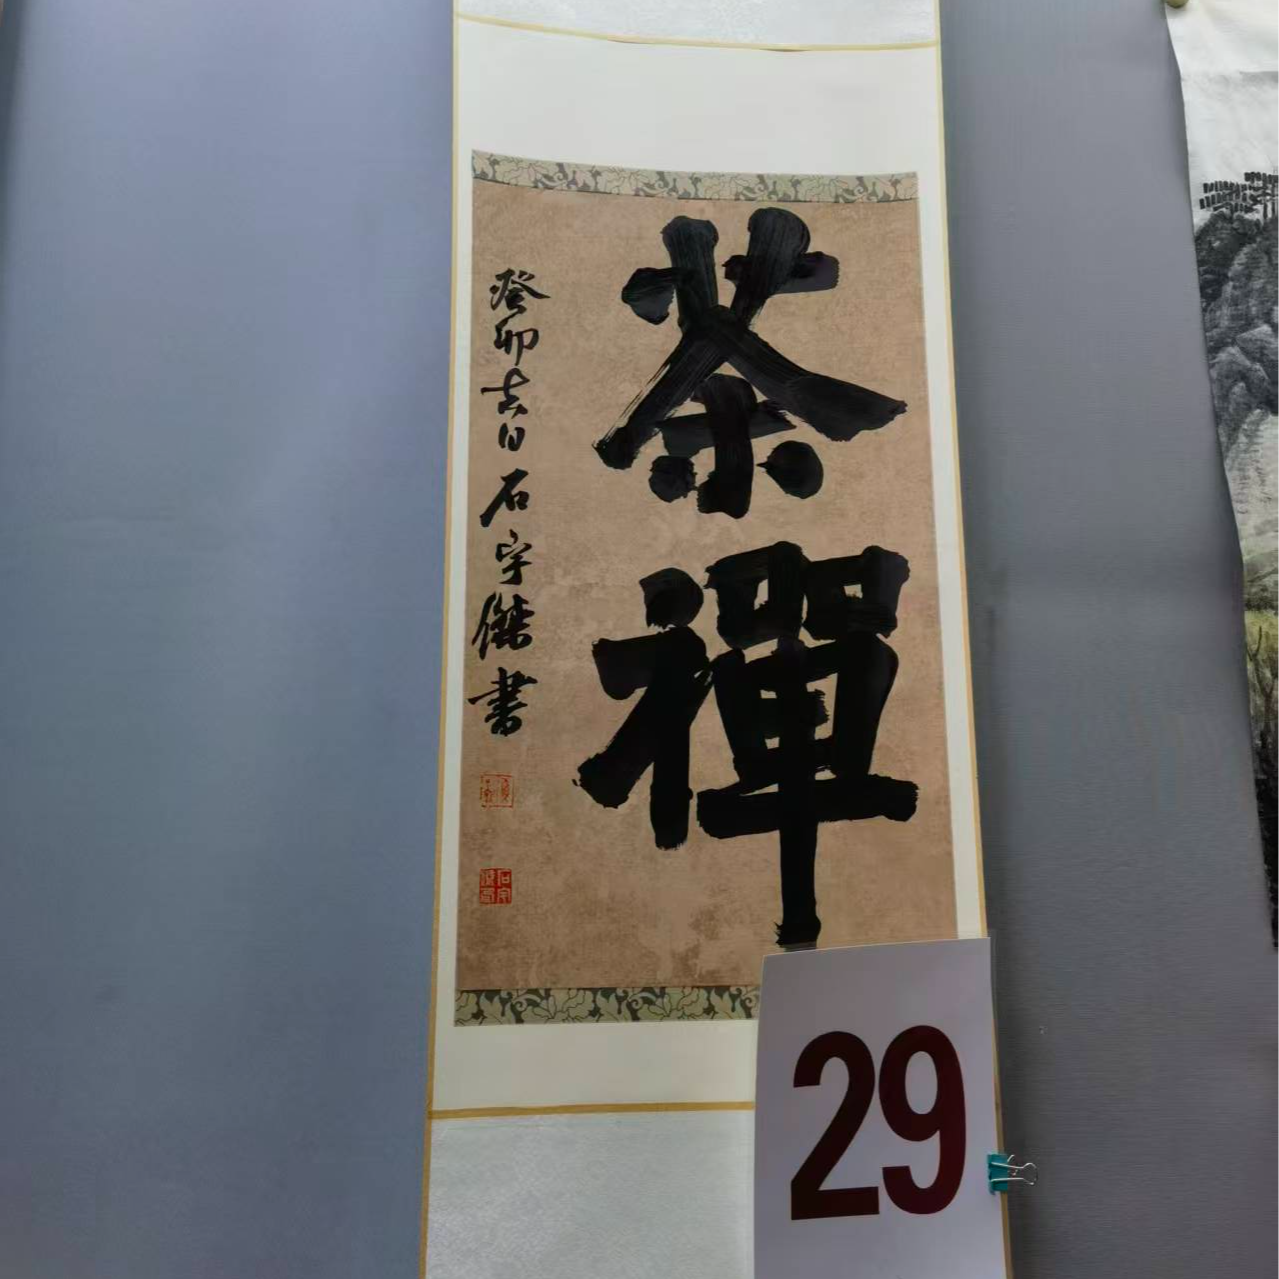 茶禪
癸卯吉日石宇傑書
29